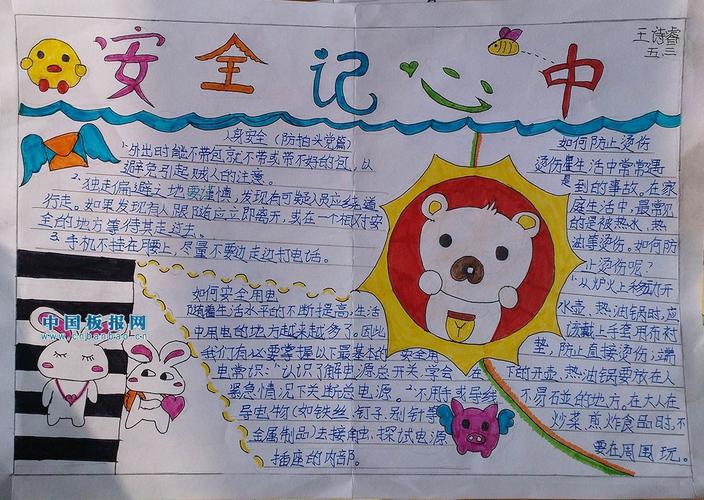 安全记心中
王诗睿
五.三
人身安全（防拍头党篇）
1.外出时能不带包就不带或带不好的包，以
避免引起贼人的注意。
2.独走偏避之地要谨慎，发现有可疑人员应绕道
行走。如果发现有人跟随应立即离开，或在一个相对安
全的地方等待其走过去。
3.手机不挂在腰上，尽量不要边走边打电话。
中国板报网
www.cnbanbao.cn
如何安全用电
随着生活水平的不断提高，生活
中用电的地方越来越多了。因此，
我们有必要掌握以下最基本的安全用
电常识：1.认识了解电源总开关，学会在
紧急情况下关断总电源。2.不用手或导线
导电物（如铁丝、钉子、别针等
金属制品）去接触、探试电源
插座的内部。
如何防止烫伤
烫伤是生活中常常遇
到的事故。在家
庭生活中，最常见
的是被热水、热
油等烫伤。如何防
止烫伤呢？
1.从炉火上移动开
水壶、热油锅时，应
该戴上手套用布衬
垫，防止直接烫伤；端
下的开壶、热油锅要放在人
不易石並的地方。在大人在
炒菜、煎炸食品时，不
要在周围玩。